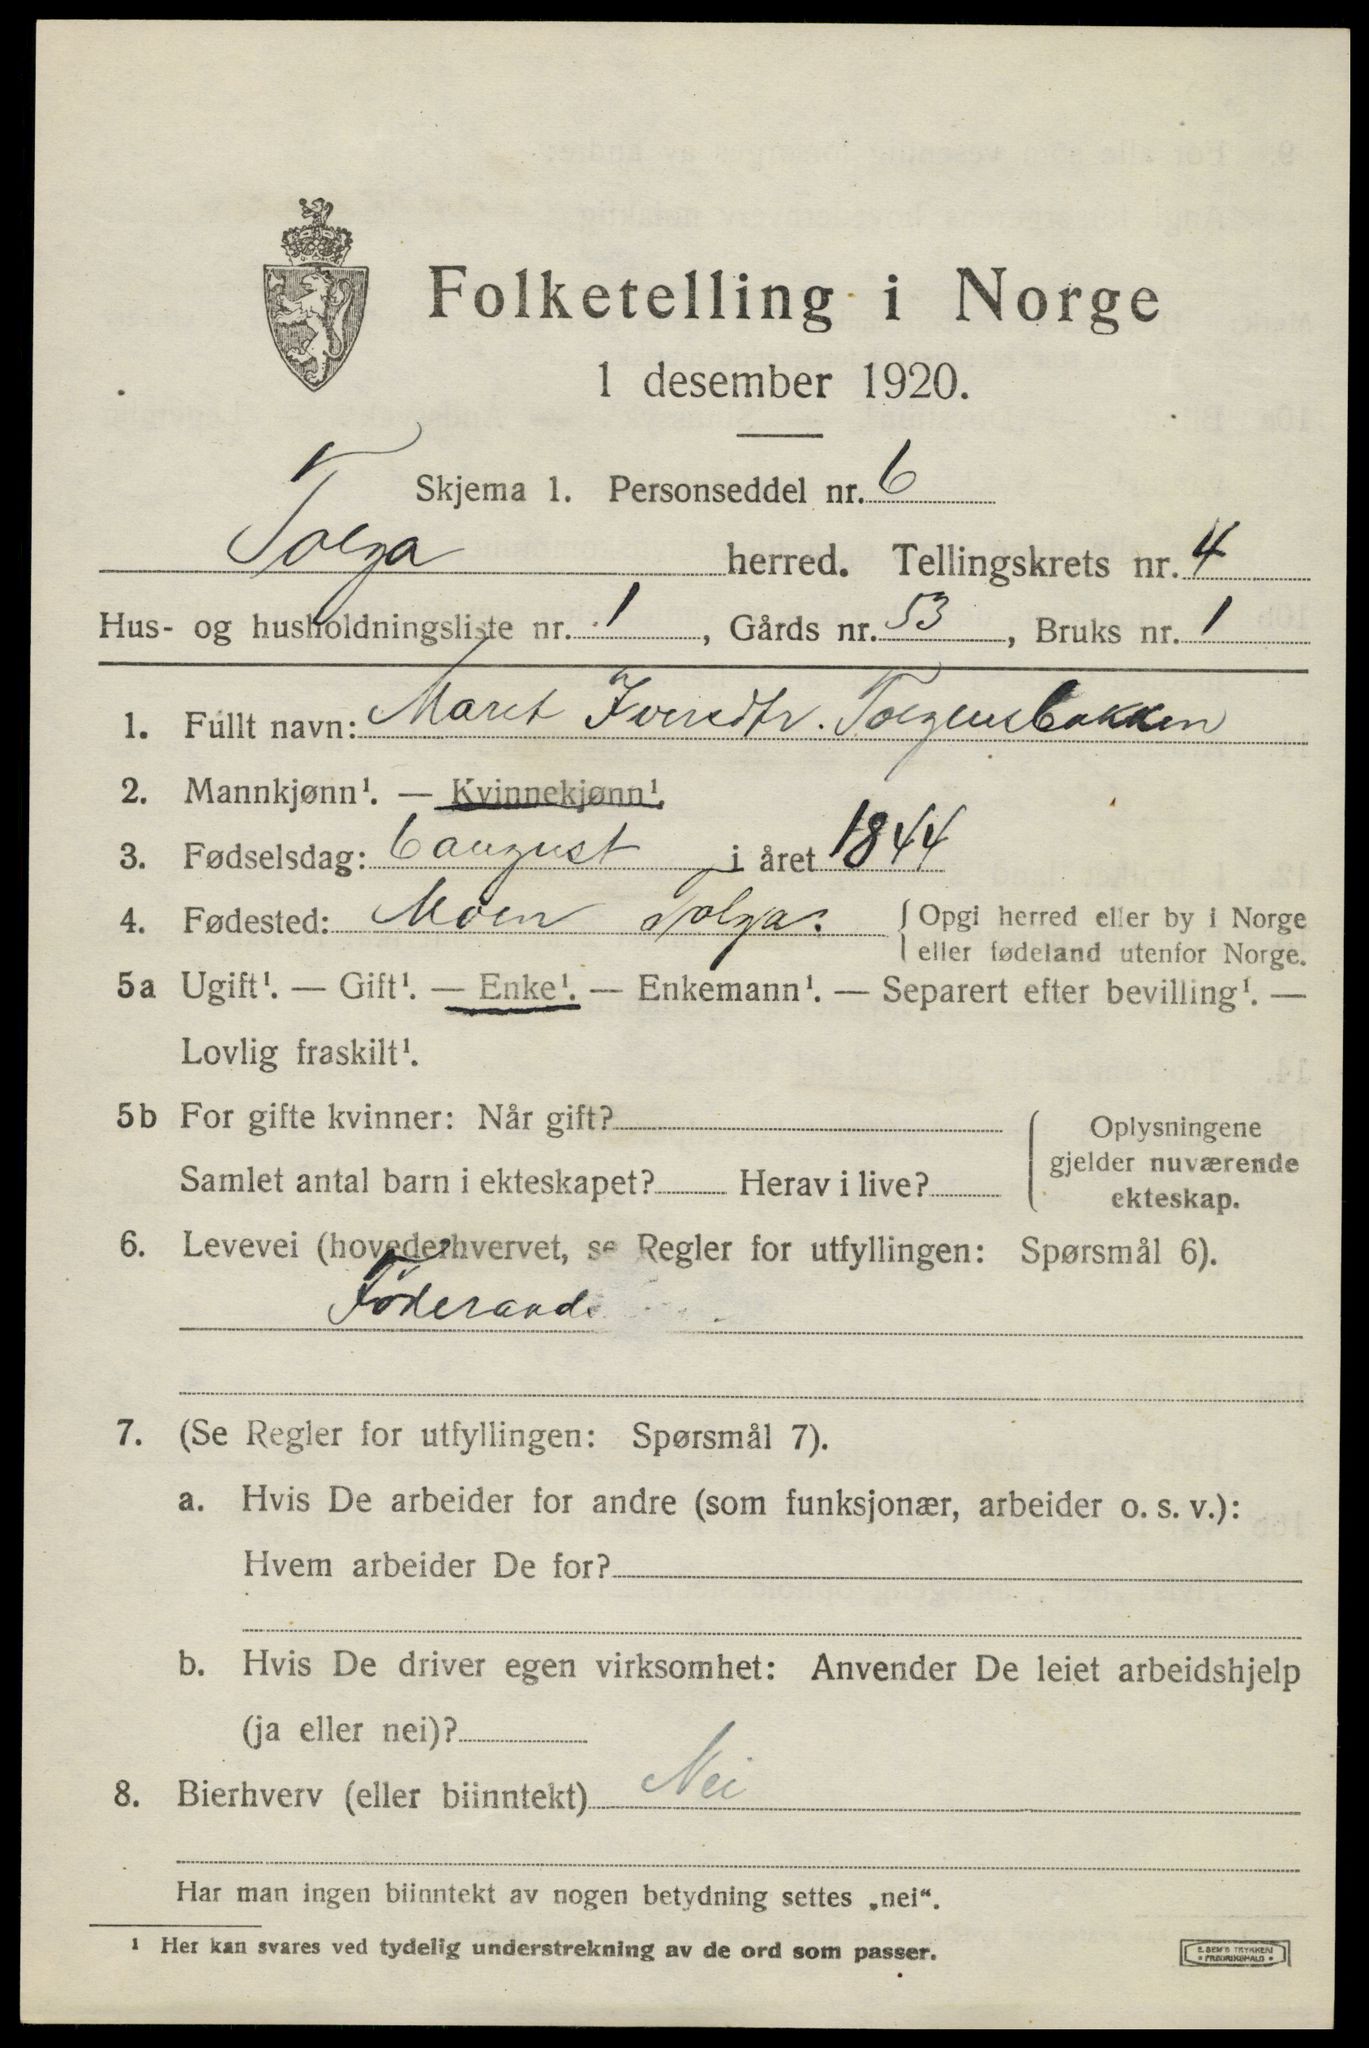 Folketelling i Norge
1 desember 1920.
Skjema 1. Personseddel nr. 6
Tolga herred. Tellingskrets nr. 4
Hus- og husholdningsliste nr. 1, Gårds nr. 53, Bruks nr. 1
1. Fullt navn: Maret Iversdtr. Tolgensbakken
2. Mannkjønn¹. — Kvinnekjønn¹.
3. Fødselsdag: 6 august i året 1844
4. Fødested: Moen Tolga. { Opgi herred eller by i Norge
eller fødeland utenfor Norge.
5a Ugift¹. — Gift¹. — Enke¹. — Enkemann¹. — Separert efter bevilling¹. —
Lovlig fraskilt¹.
5b For gifte kvinner: Når gift? { Oplysningene
gjelder nuværende
Samlet antal barn i ekteskapet? Herav i live?
ekteskap.
6. Levevei (hovederhvervet, se Regler for utfyllingen: Spørsmål 6).
Føderaad
7. (Se Regler for utfyllingen: Spørsmål 7).
a. Hvis De arbeider for andre (som funksjonær, arbeider o. s. v.):
Hvem arbeider De for?
b. Hvis De driver egen virksomhet: Anvender De leiet arbeidshjelp
(ja eller nei)?
8. Bierhverv (eller biinntekt) Nei
Har man ingen biinntekt av nogen betydning settes „nei“.
¹ Her kan svares ved tydelig understrekning av de ord som passer.
E. SEM'S TRYKKERI
• FREDRIKSHALD •